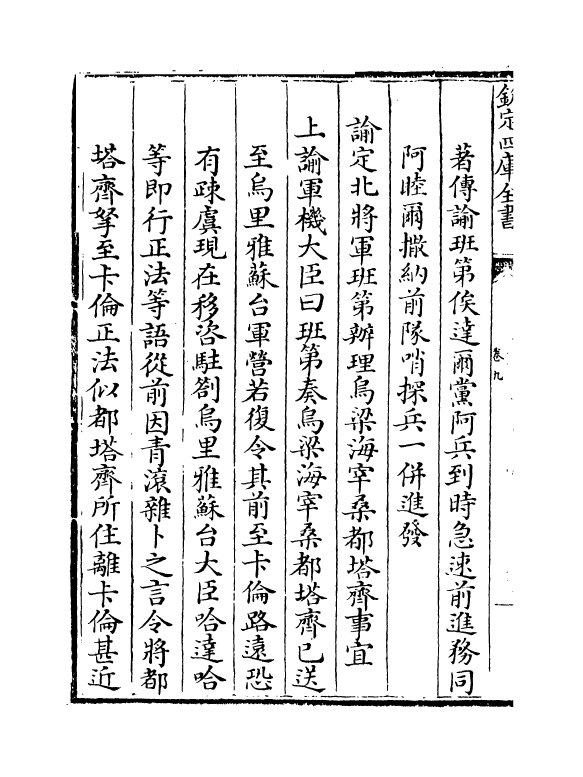 欽定四庫全書
卷九
著傳諭班第俟達爾黨阿兵到時急速前進務同
阿睦爾撒納前隊哨探兵一併進發
諭定北將軍班第辦理烏梁海宰桑都塔齊事宜
上諭軍機大臣曰班第奏烏梁海宰桑都塔齊已送
至烏里雅蘇台軍營若復令其前至卡倫路遠恐
有疎虞現在移咨駐劄烏里雅蘇台大臣哈達哈
等即行正法等語從前因青滾雜卜之言令將都
塔齊拏至卡倫正法似都塔齊所住離卡倫甚近